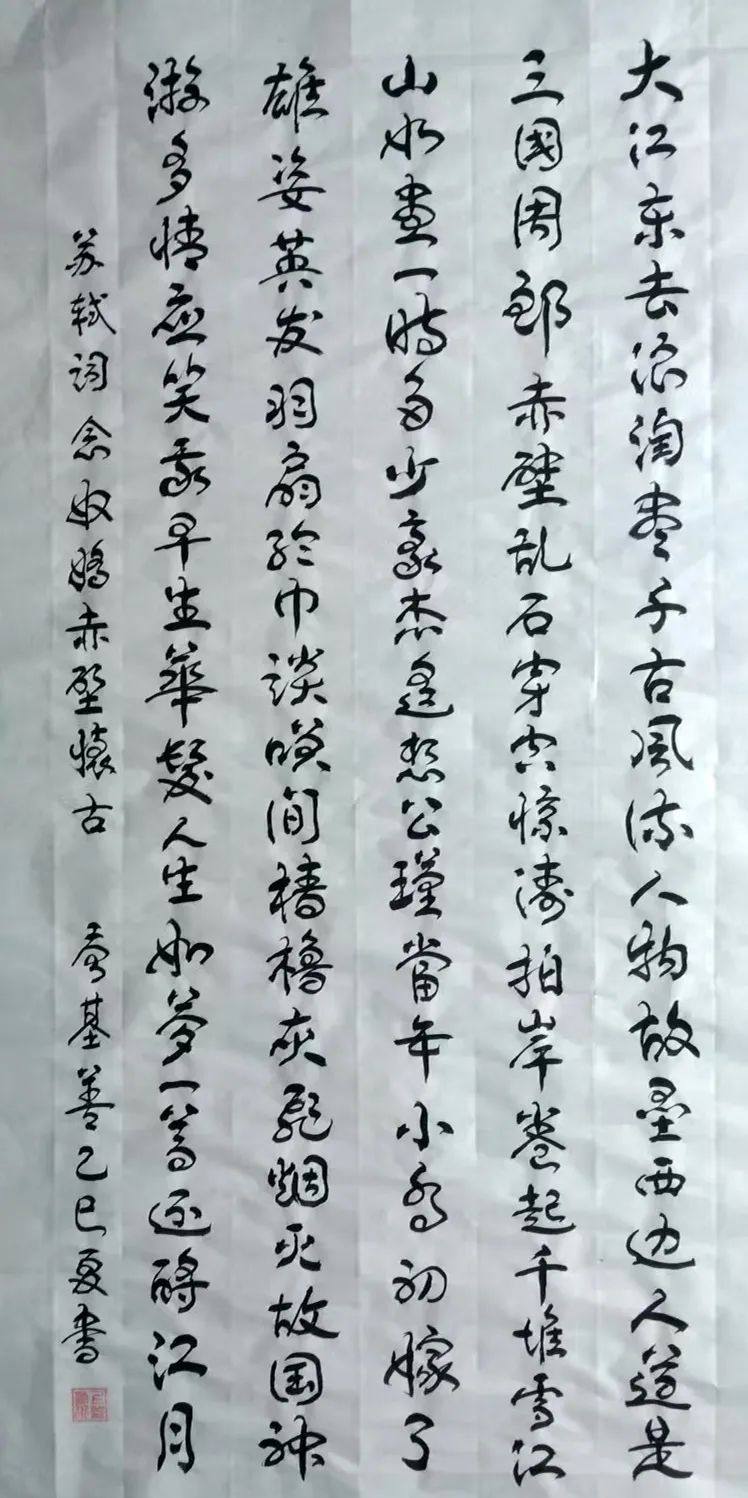 大江东去浪淘尽千古风流人物故垒西边人道是
三國周郎赤壁乱石穿空惊涛拍岸卷起千堆雪江
山如画一時多少豪杰遥想公瑾當年小乔初嫁了
雄姿英发羽扇纶巾談咲间樯橹灰飛烟灭故国神
游多情应笑我早生華髮人生如梦一尊还酹江月
苏轼词念奴嬌赤壁懷古 基善乙巳夏書